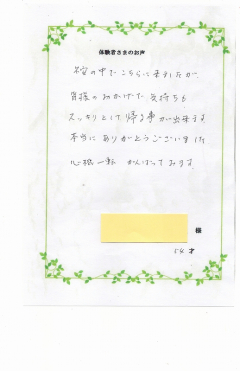 体験者さまのお声
の中たこちらに来ましたが
皆様のおかげで気持ちも
スッキリとして帰る事が出来ます
本当にありがとうございました
心機一転 がんばってみます
様
54才